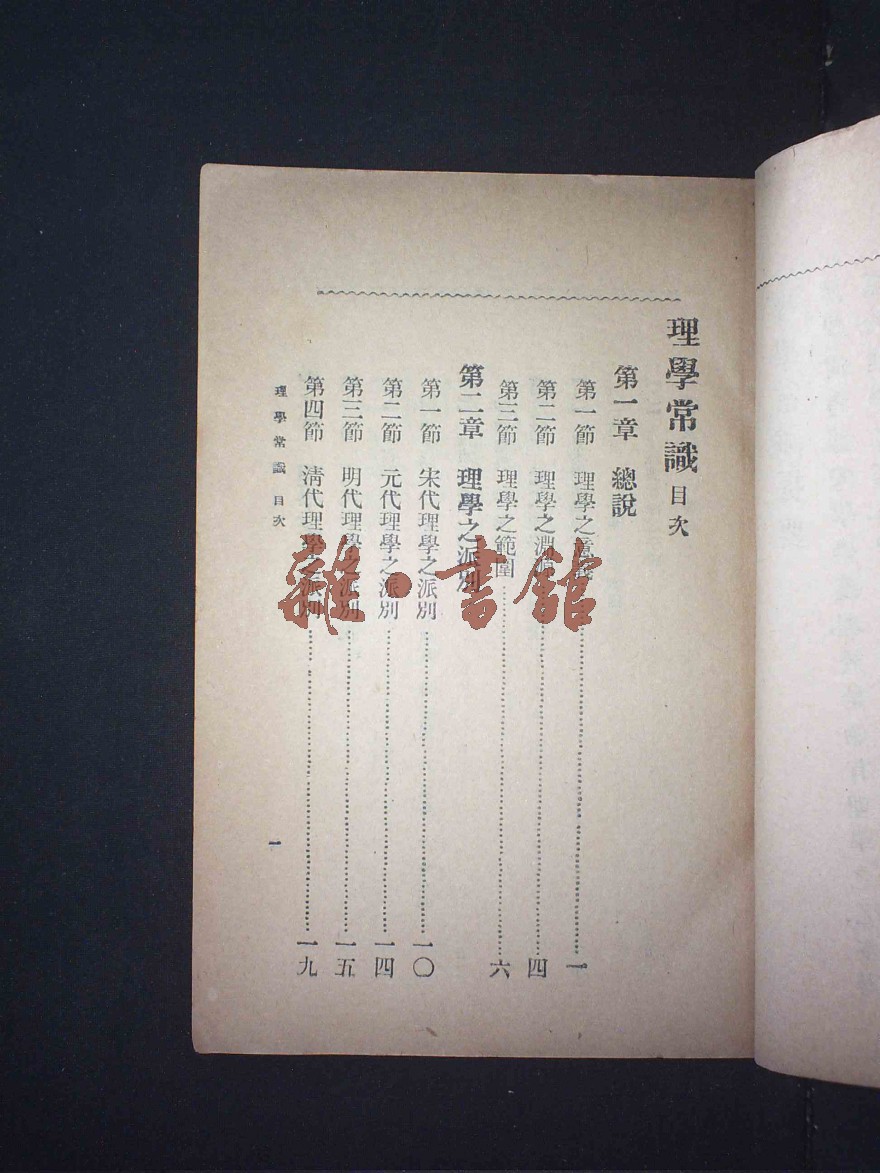 理學常識 目次
第一章 總說
第一節 理學之意義 一
第二節 理學之淵源 四
第三節 理學之範圍 六
第二章 理學之派別
第一節 宋代理學之派別 一〇
第二節 元代理學之派別 一四
第三節 明代理學之派別 一五
第四節 清代理學之派別 一九
理學常識 目次
一
雜·書館